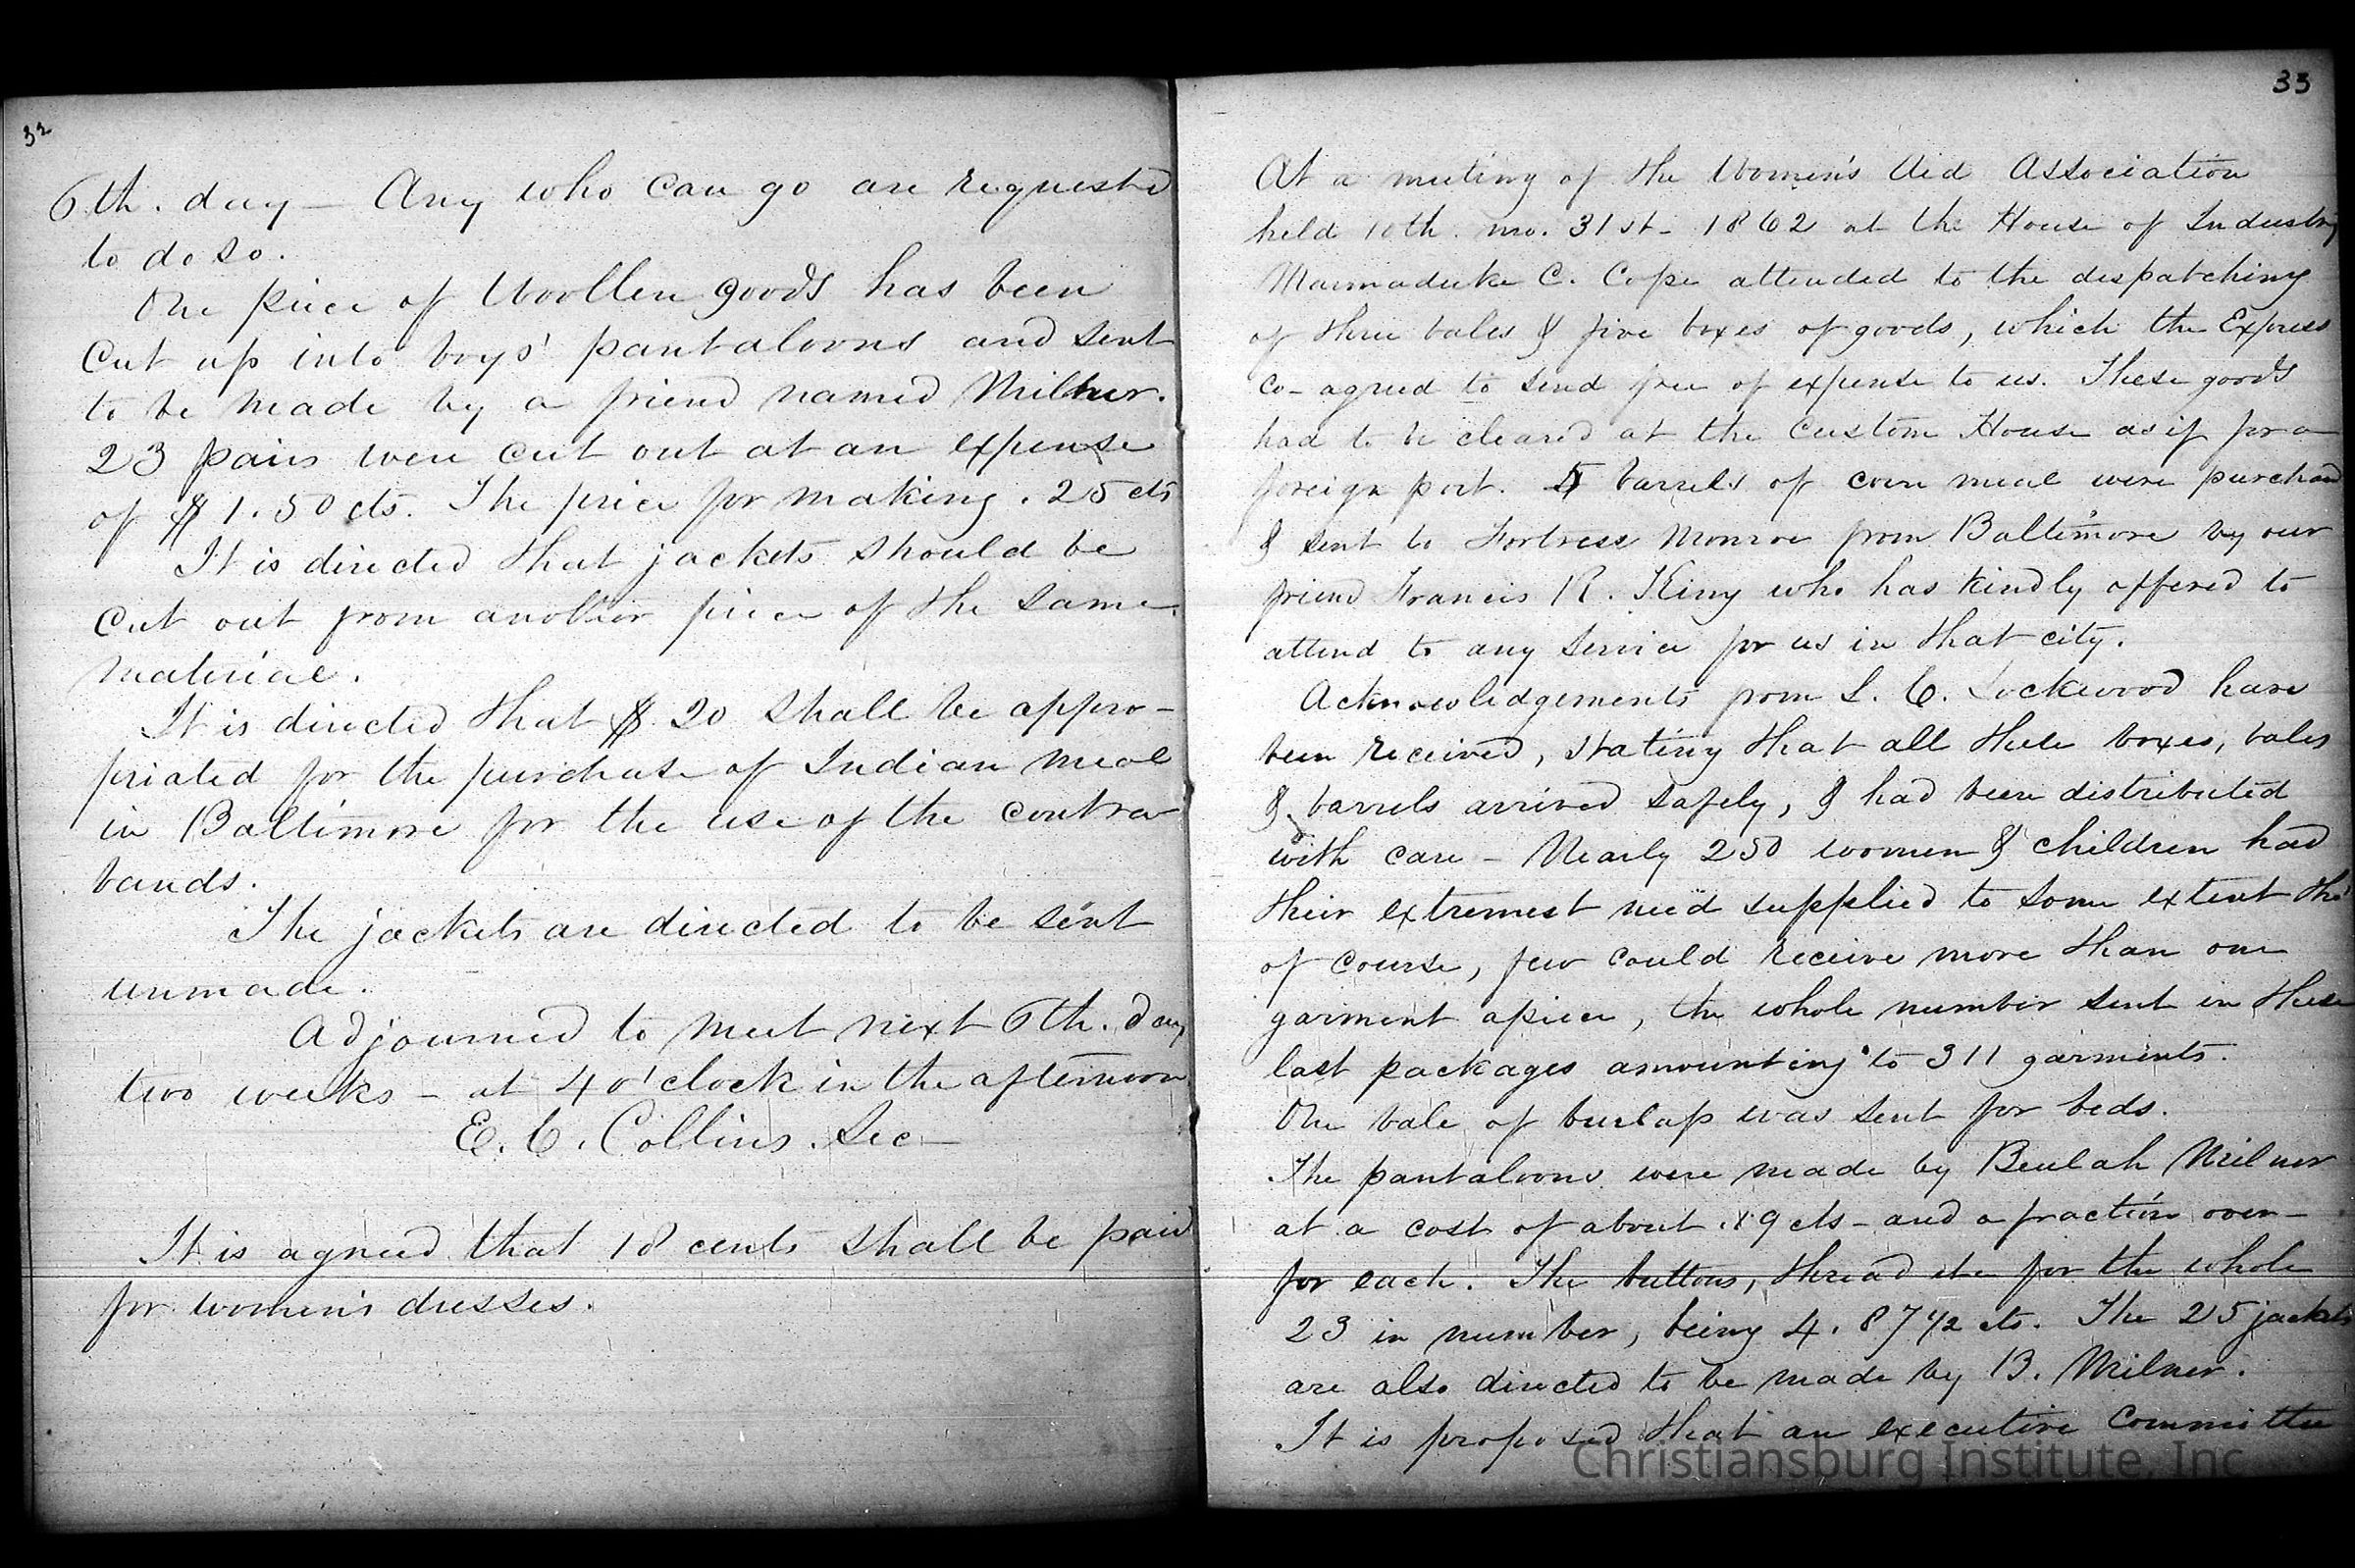 32
6th. day - Any who can go are requested
to do so.
One piece of Woollen goods has been
cut up into boys' pantaloons and sent
to be made by a friend named Milner.
23 pairs were cut out at an expense
of $1.50 cts. The price for making .25 cts
It is directed that jackets should be
cut out from another piece of the same
material.
It is directed that $20 shall be appro-
priated for the purchase of Indian meal
in Baltimore for the use of the contra
bands.
The jackets are directed to be sent
unmade.
Adjourned to meet next 6th. day
two weeks - at 4 o'clock in the afternoon
E. C. Collins. Sec-
It is agreed that 18 cents shall be paid
for women's dresses.
33
At a meeting of the Women's Aid Association
held 10th. mo. 31st - 1862 at the House of Industry
Marmaduke C. Cope attended to the despatching
of three bales & five boxes of goods, which the Express
Co- agreed to send free of expense to us. These goods
had to be cleared at the Custom House as if for a
foreign port. 5 barrels of corn meal were purchased
& sent to Fortress Monroe from Baltimore by our
friend Francis R. King who has kindly offered to
attend to any service for us in that city.
Acknowledgements from L. C. Lockwood have
been received, stating that all these boxes, bales
& barrels arrived safely, & had been distributed
with care - Nearly 250 women & children had
their extremest need supplied to some extent tho'
of course, few could receive more than one
garment apiece, the whole number sent in these
last packages amounting to 311 garments.
One bale of burlap was sent for beds.
The pantaloons were made by Beulah Milner
at a cost of about .19 cts - and a fraction over -
for each. The buttons, thread etc for the whole
23 in number, being 4.87 1/2 cts. The 25 jackets
are also directed to be made by B. Milner.
It is proposed that an executive Committee
Christiansburg Institute, Inc